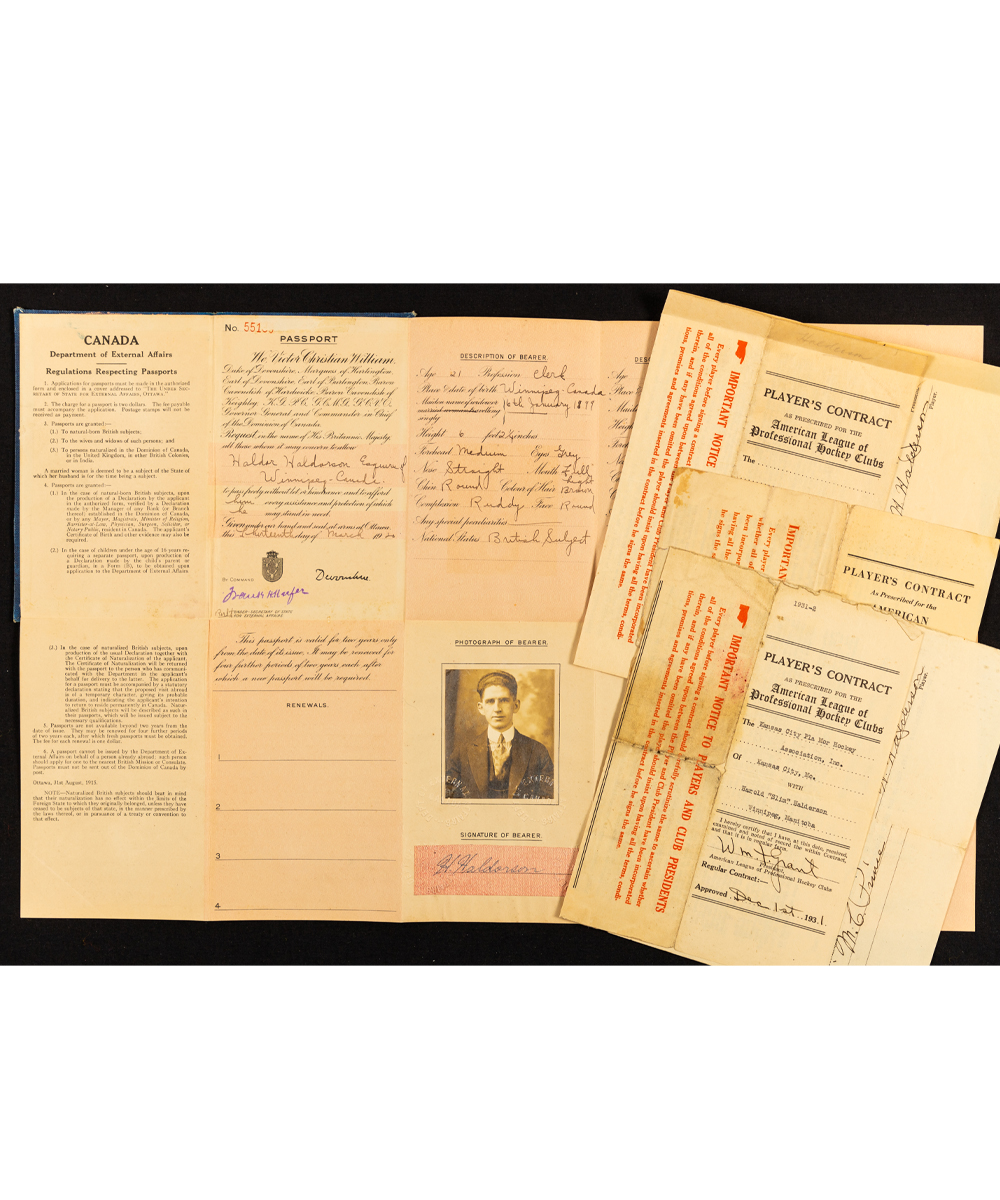 CANADA
Department of External Affairs
Regulations Respecting Passports
1. Applications for passports must be made in the authorized
form and enclosed in a cover addressed to "THE UNDER SEC-
RETARY OF STATE FOR EXTERNAL AFFAIRS, OTTAWA."
2. The charge for a passport is two dollars. The fee payable
must accompany the application. Postage stamps will not be
received as payment.
3. Passports are granted—
(1.) To natural-born British subjects;
(2.) To the wives and widows of such persons; and
(3.) To persons naturalized in the Dominion of Canada,
in the United Kingdom, in other British Colonies,
or in India.
A married woman is deemed to be a subject of the State of
which her husband is for the time being a subject.
4. Passports are granted—
(1.) In the case of natural-born British subjects, upon
the production of a Declaration by the applicant
in the authorized form, verified by a Declaration
made by the Manager of any Bank (or Branch
thereof) established in the Dominion of Canada,
or by any Mayor, Magistrate, Minister of Religion,
Barrister-at-Law, Physician, Surgeon, Solicitor, or
Notary Public, resident in Canada. The applicant's
Certificate of Birth and other evidence may also be
required.
(2.) In the case of children under the age of 16 years re-
quiring a separate passport, upon production of
a Declaration made by the child's parent or
guardian, in a Form (B), to be obtained upon
application to the Department of External Affairs.
(3.) In the case of naturalized British subjects, upon
production of the usual Declaration together with
the Certificate of Naturalization of the applicant.
The Certificate of Naturalization will be returned
with the passport to the person who has communi-
cated with the Department in the applicant's
behalf for delivery to the latter. The application
for a passport must be accompanied by a statutory
declaration stating that the proposed visit abroad
is of a temporary character, giving its probable
duration, and indicating the applicant's intention
to return to reside permanently in Canada. Natur-
alized British subjects will be described as such in
their passports, which will be issued subject to the
necessary qualifications.
5. Passports are not available beyond two years from the
date of issue. They may be renewed for four further periods
of two years each, after which fresh passports must be obtained.
The fee for each renewal is one dollar.
6. A passport cannot be issued by the Department of Ex-
ternal Affairs on behalf of a person already abroad; such person
should apply for one to the nearest British Mission or Consulate.
Passports must not be sent out of the Dominion of Canada by
post.
Ottawa, 31st August, 1915.
NOTE—Naturalized British subjects should bear in mind
that their naturalization has no effect within the limits of the
Foreign State to which they originally belonged, unless they have
ceased to be subjects of that state, in the manner prescribed by
the laws thereof, or in pursuance of a treaty or convention to
that effect.
No. 551
PASSPORT
We Victor Christian William,
Duke of Devonshire, Marquess of Hartington,
Earl of Devonshire, Earl of Burlington, Baron
Cavendish of Hardwicke, Baron Cavendish of
Keighley, K.G., P.C., G.C.M.G., G.C.V.O.
Governor General and Commander in Chief
of the Dominion of Canada.
Request in the name of His Britannic Majesty
all those whom it may concern to allow
Haldor Haldorson Esquire of
Winnipeg-Canada
to pass freely without let or hindrance and to afford
him every assistance and protection of which
he may stand in need.
Given under our hand and seal at arms at Ottawa
this Thirteenth day of March 1920
Devonshire
BY COMMAND
UNDER-SECRETARY OF STATE
FOR EXTERNAL AFFAIRS
This passport is valid for two years only
from the date of its issue. It may be renewed for
four further periods of two years, each after
which a new passport will be required.
RENEWALS.
1
2
3
4
DESCRIPTION OF BEARER.
Age 21 Profession Clerk
Place & date of birth Winnipeg-Canada
16th January 1899
Height 6 feet 2 inches
Forehead Medium Eyes Grey
Nose Straight Mouth Full
Chin Round Colour of Hair Light Brown
Complexion Ruddy Face Round
Any special peculiarities
National Status British Subject
PHOTOGRAPH OF BEARER.
SIGNATURE OF BEARER.
H. Haldorson
IMPORTANT NOTICE
PLAYER'S CONTRACT
AS PRESCRIBED FOR THE
American League of
Professional Hockey Clubs
The
H. Halderson
IMPORTANT
PLAYER'S CONTRACT
As Prescribed for the
AMERICAN
IMPORTANT NOTICE TO PLAYERS AND CLUB PRESIDENTS
Every player before signing a contract should carefully scrutinize the same to ascertain whether
all of the conditions agreed upon between the player and Club President have been incorporated
therein, and if any have been omitted the player should insist upon having all the terms, condi-
tions, promises and agreements inserted in the contract before he signs the same.
1931-2
PLAYER'S CONTRACT
AS PRESCRIBED FOR THE
American League of
Professional Hockey Clubs
The Kansas City Pla Mor Hockey
Association, Inc.
Of Kansas City, Mo.
WITH
Harold "Slim" Halderson
Winnipeg, Manitoba
I hereby certify that I have, at this date, received,
examined and noted of record the within Contract,
and that it is in regular form.
Wm. F. Grant
President,
American League of Professional Hockey Clubs
Regular Contract:—
Approved Dec 1st 1931